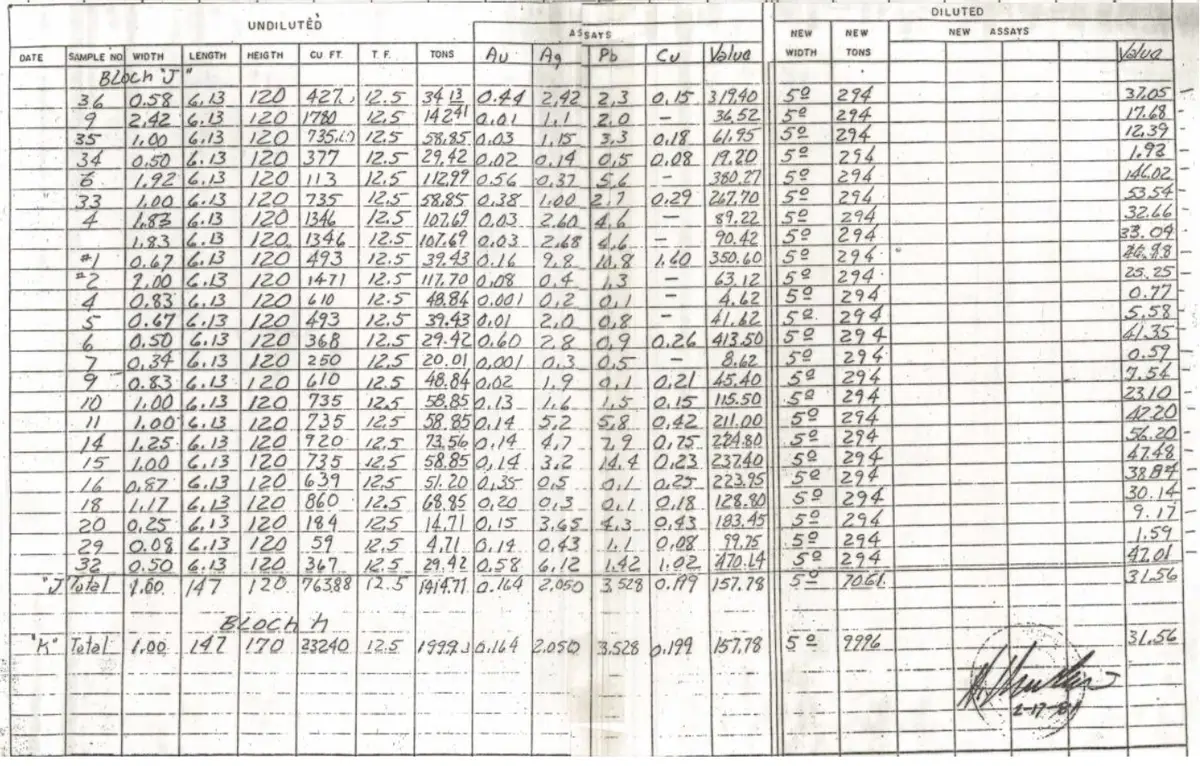 UNDILUTED DILUTED
ASSAYS NEW NEW NEW ASSAYS
DATE SAMPLE NO WIDTH LENGTH HEIGTH CU FT. T. F. TONS Au Ag Pb Cu Value WIDTH TONS Value
BLOCH "J"
36 0.58 6.13 120 427 12.5 34.13 0.44 2.42 2.3 0.15 319.40 5º 294 37.05
9 2.42 6.13 120 1780 12.5 142.41 0.01 1.1 2.0 — 36.52 5º 294 17.68
35 1.00 6.13 120 735 12.5 58.85 0.03 1.15 3.3 0.18 61.95 5º 294 12.39
34 0.50 6.13 120 377 12.5 29.42 0.02 0.14 0.5 0.08 19.20 5º 294 1.92
6 1.92 6.13 120 113 12.5 112.99 0.56 0.37 5.6 — 380.27 5º 294 146.02
" 33 1.00 6.13 120 735 12.5 58.85 0.38 1.00 2.7 0.29 267.70 5º 294 53.54
4 1.83 6.13 120 1346 12.5 107.69 0.03 2.60 4.6 — 89.22 5º 294 32.66
1.83 6.13 120 1346 12.5 107.69 0.03 2.68 4.6 — 90.42 5º 294 33.09
#1 0.67 6.13 120 493 12.5 39.43 0.16 9.8 10.8 1.60 350.60 5º 294
#2 2.00 6.13 120 1471 12.5 117.70 0.08 0.4 1.3 — 63.12 5º 294 25.25
4 0.83 6.13 120 610 12.5 48.84 0.001 0.2 0.1 — 4.62 5º 294 0.77
5 0.67 6.13 120 493 12.5 39.43 0.01 2.0 0.8 — 41.62 5º 294 5.58
6 0.50 6.13 120 368 12.5 29.42 0.60 2.8 0.9 0.26 413.50 5º 294 41.35
7 0.34 6.13 120 250 12.5 20.01 0.001 0.3 0.5 — 8.62 5º 294 0.59
9 0.83 6.13 120 610 12.5 48.84 0.02 1.9 0.1 0.21 45.40 5º 294 7.54
10 1.00 6.13 120 735 12.5 58.85 0.13 1.6 1.5 0.15 115.50 5º 294 23.10
11 1.00 6.13 120 735 12.5 58.85 0.14 5.2 5.8 0.42 211.00 5º 294 42.20
14 1.25 6.13 120 920 12.5 73.56 0.14 4.7 7.9 0.75 224.80 5º 294 56.20
15 1.00 6.13 120 735 12.5 58.85 0.14 3.2 14.4 0.23 237.40 5º 294 47.48
16 0.87 6.13 120 639 12.5 51.20 0.35 0.5 0.1 0.25 223.95 5º 294
18 1.17 6.13 120 860 12.5 68.85 0.20 0.3 0.1 0.18 128.80 5º 294 30.14
20 0.25 6.13 120 184 12.5 14.71 0.15 3.65 4.3 0.43 183.45 5º 294 9.17
29 0.08 6.13 120 59 12.5 4.71 0.14 0.43 1.1 0.08 99.75 5º 294 1.59
32 0.50 6.13 120 367 12.5 29.42 0.58 6.12 1.42 1.02 470.14 5º 294 47.01
"J Total 1.00 147 120 76388 12.5 1414.71 0.164 2.050 3.528 0.199 157.78 5º 7061 31.56
BLOCH h
"K" Total 1.00 147 170 23240 12.5 1999. 0.164 2.050 3.528 0.199 157.78 5º 9996 31.56